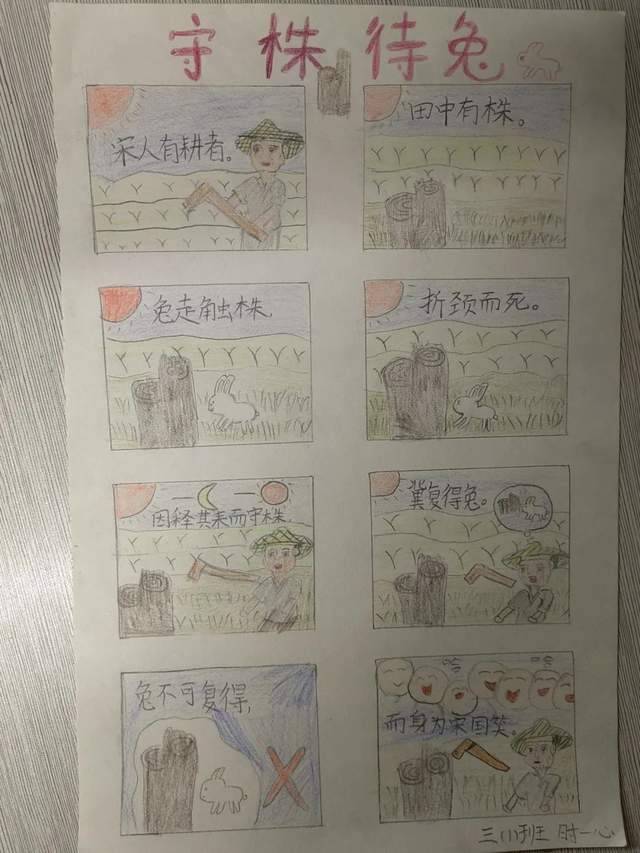 守株待兔
宋人有耕者。
田中有株。
兔走触株,
折颈而死。
因释其耒而守株
冀复得兔。
兔不可复得,
而身为宋国笑。
三(1)班 时一心